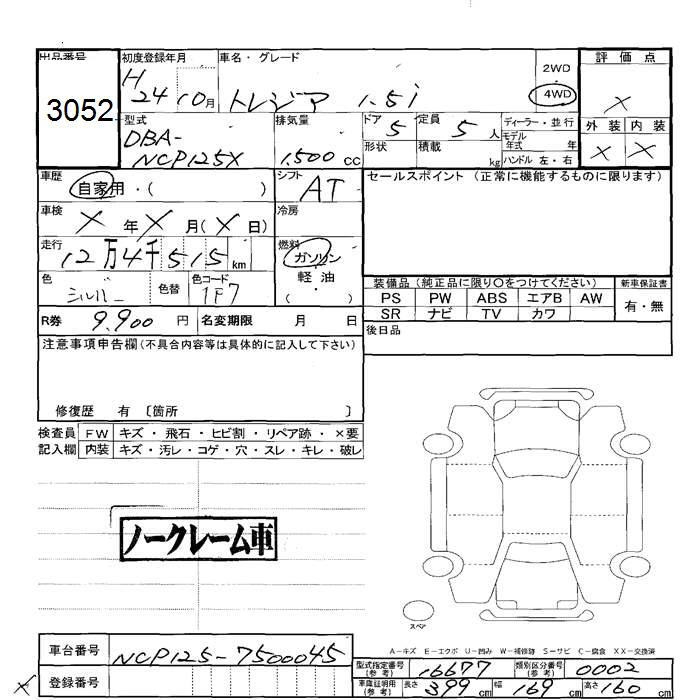 出品番号
3052
初度登録年月
H 24 10月
車名・グレード
トレジア 1.5i
2WD
4WD
評価点
×
外装 内装
× ×
型式
DBA-
NCP125X
排気量
1,500 cc
ドア 5
定員 5 人
形状
積載 kg
ディーラー・並行
モデル年式 年
ハンドル 左・右
車歴
自家用・( )
シフト
AT
車検
× 年 × 月(× 日)
冷房
走行
12万4千515 km
燃料
ガソリン
軽油
( )
色
シルバー
色替
色コード
1F7
R券 9,900 円
名変期限 月 日
セールスポイント (正常に機能するものに限ります)
装備品 (純正品に限り○をつけてください)
PS PW ABS エアB AW
SR ナビ TV カワ
新車保証書
有・無
後日品
注意事項申告欄(不具合内容等は具体的に記入して下さい)
修復歴 有 〔箇所 〕
検査員記入欄
FW キズ・飛石・ヒビ割・リペア跡・×要
内装 キズ・汚レ・コゲ・穴・スレ・キレ・破レ
ノークレーム車
スペア
A-キズ E-エクボ U-凹み W-補修跡 S-サビ C-腐食 XX-交換済
車台番号 NCP125-7500045
登録番号
×
型式指定番号(参考) 16677
類別区分番号(参考) 0002
車庫証明用(参考) 長さ 399 cm 幅 169 cm 高さ 160 cm